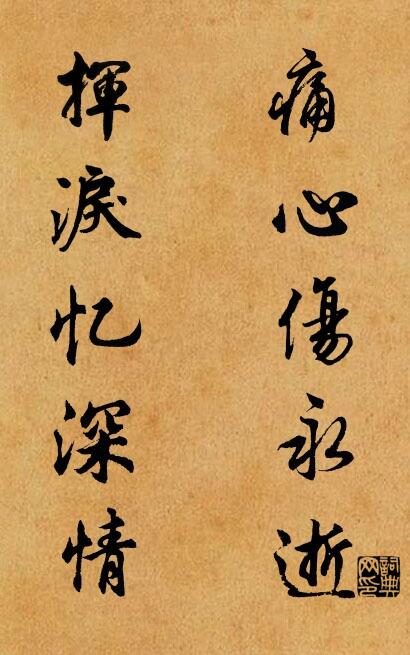 痛心傷永逝
揮淚忆深情
詞典网印